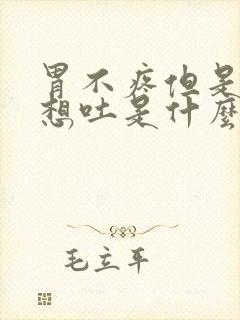 胃不疼但是
想吐是什麼
毛立平